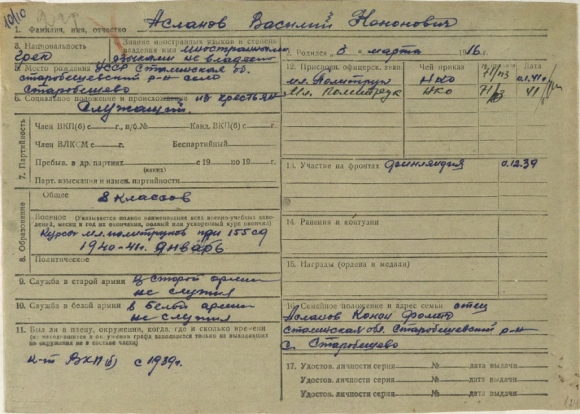 10/10
1. Фамилия, имя, отчество Асланов Василий Кононович
3. Национальность
грек
Знание иностранных языков и степень
владения ими иностранными
языками не владеет
2. Родился 8 марта 1916 г.
5. Место рождения УССР Сталинская об.
старобешевский р-н село
Старобешево
6. Социальное положение и происхождение из крестьян
Служащий.
7. Партийность
Член ВКП(б) с г., п/б.№ Канд. ВКП(б) с г.
Член ВЛКСМ с г. Беспартийный
Пребыв. в др. партиях с 19 по 19 г.
(каких)
Парт. взыскания и измен. партийности
8. Образование
Общее
8 классов
Военное (Указывается полное наименование всех военно-учебных заведений, месяц и год их окончания, полный или ускоренный курс окончил)
Курсы мл. политруков при 155 сд
1940-41г. январь
Политическое
9. Служба в старой армии в старой армии
не служил
10. Служба в белой армии в белой армии
не служил
11. Был ли в плену, окружении, когда, где и сколько времени
к-т ВКП(б) с 1939г.
12. Присвоен. офицерск. зван. Чей приказ № приказа
мл. Политрук НКО 71/113
Мл. Политрук НКО 71/113 41
13. Участие на фронтах Финляндия 0.12.39
14. Ранения и контузии
15. Награды (ордена и медали)
16. Семейное положение и адрес семьи отец
Асланов Конон
Сталинская обл. Старобешевский р-н
с. Старобешево
17. Удостов. личности серия № дата выдачи
Удостов. личности серия № дата выдачи
Удостов. личности серия № дата выдачи